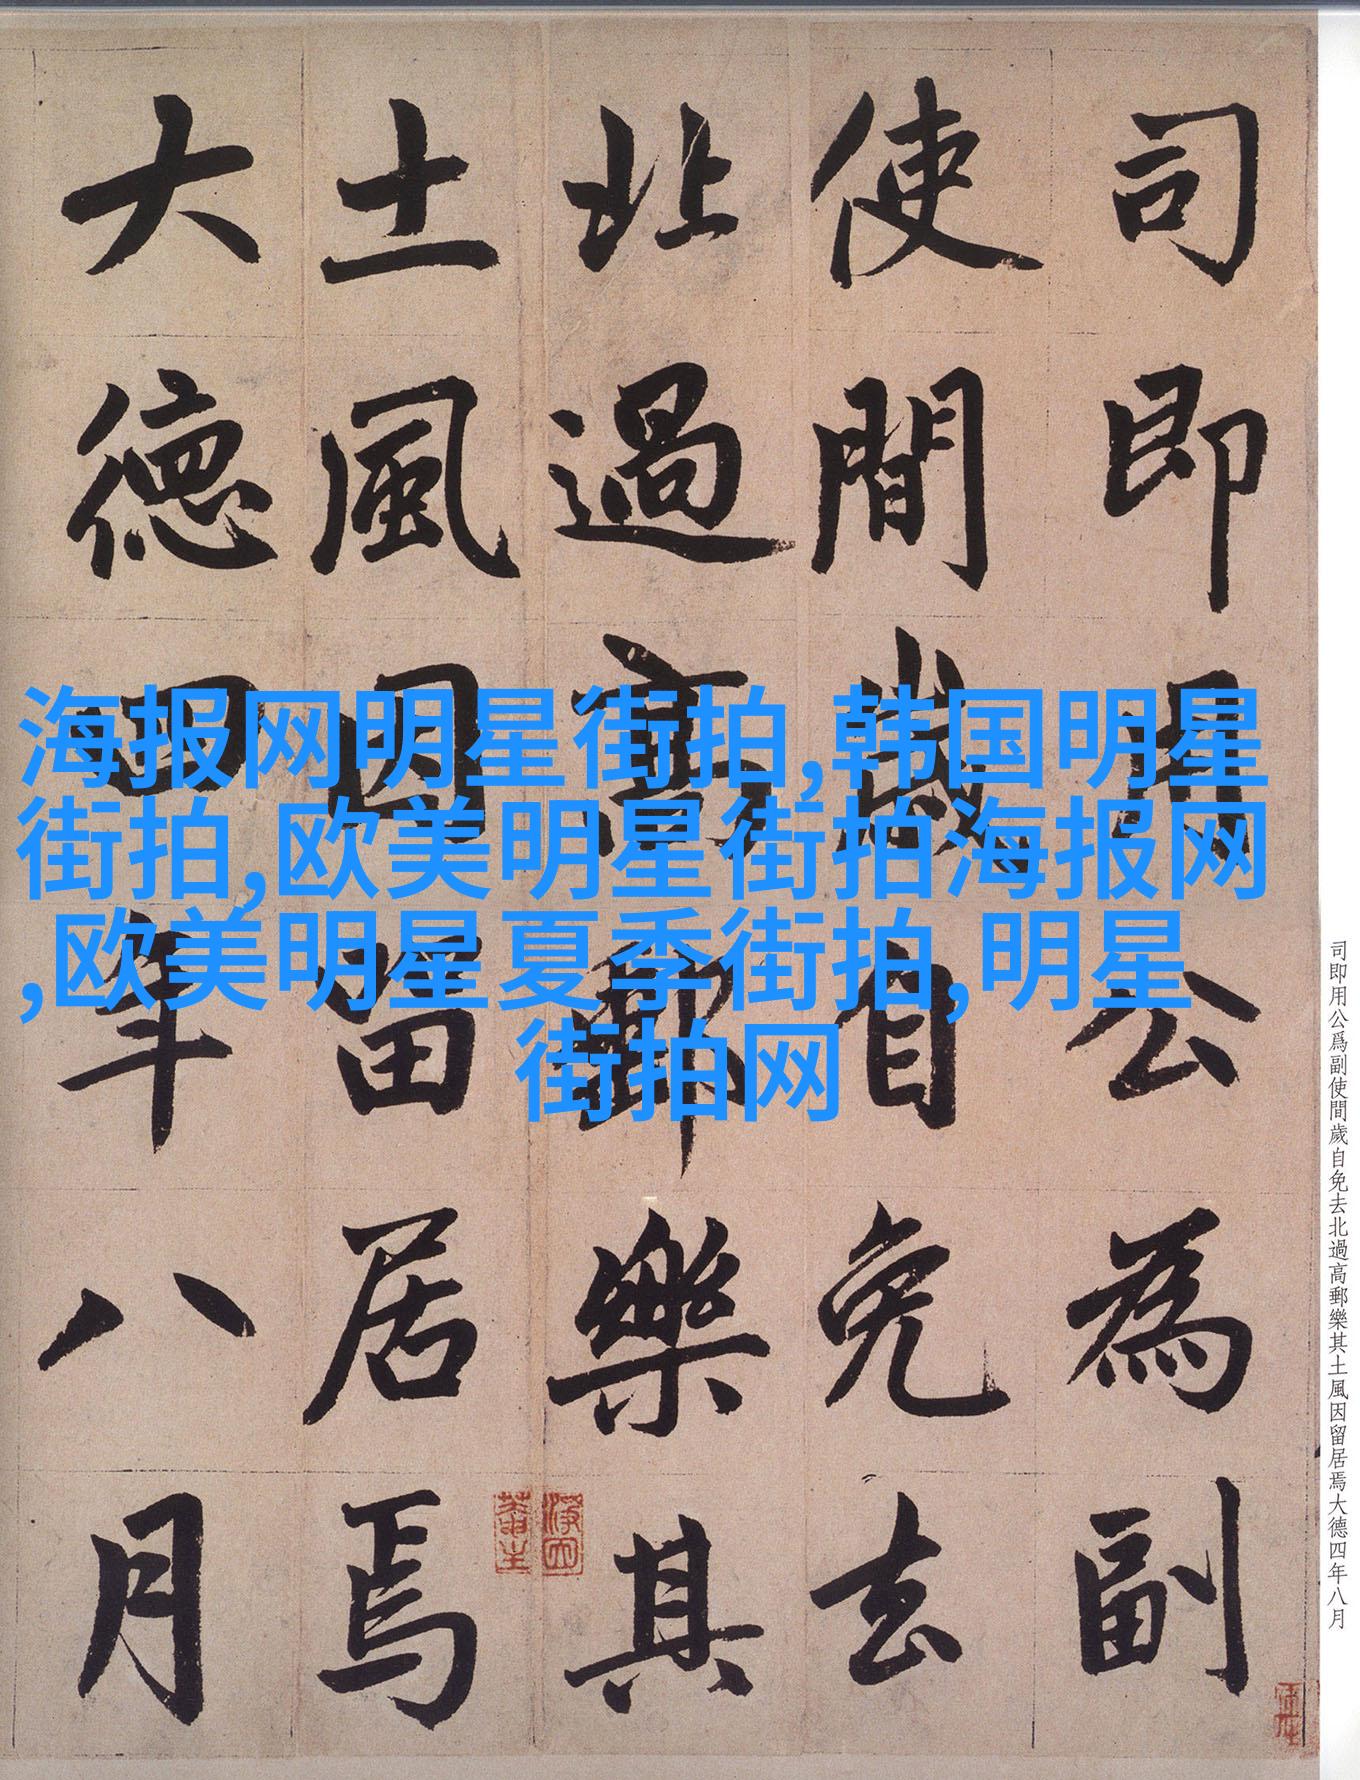 司即用公為副
使間歲自免去
北過高郵樂其
土風因留居焉
大德四年八月
海报网明星街拍,韩国明星
街拍,欧美明星街拍海报网
,欧美明星夏季街拍,明星
街拍网
司即用公爲副使間歲自免去北過高郵樂其土風因留居焉大德四年八月